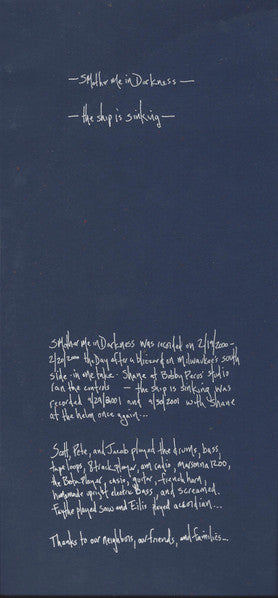 — SMother me in Darkness —
— the ship is sinking —
SMother me in Darkness was recorded on 2/19/2000-
2/20/2000 the Day after a blizzard on Milwaukee's south
side - in one take - Shane at Bobby Peros' studio
ran the controls — the ship is sinking was
recorded 9/29/2001 and 9/30/2001 with Shane
at the helm once again...
Scott, Pete, and Jacob played the drums, bass,
tape loops, 8 track player, am radio, 1200,
the Beta Player, casio, guitar, french horn,
homemade upright electric Bass, and screamed.
Faythe played saw and Eilis played accordian...
Thanks to our neighbors, our friends, and families...